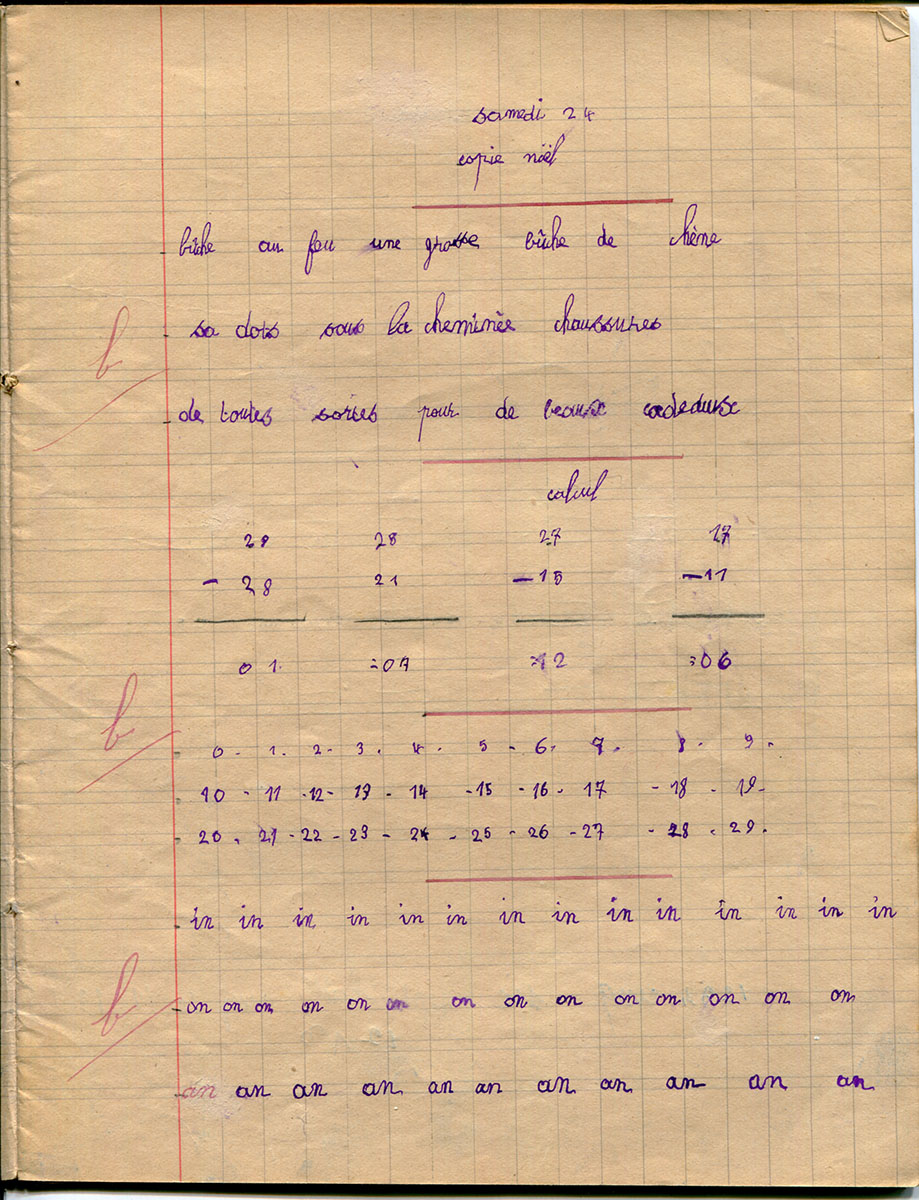 samedi 24
copie nöel
bûche au feu une grosse bûche de chêne
sa dots sous la cheminée chaussures
de toutes sortes pour de beaux cadeaux
calcul
29 28 27 17
- 28 21 -15 -11
01. =07 =12 =06
b
0 - 1. 2 - 3. 4 - 5 - 6. 7. 8. 9.
10 - 11 -12- 13 - 14 -15 -16- 17 -18 - 19-
20. 21 -22 -23 - 24 -25 -26 -27 -28. 29.
b
in in in in in in in in in in in in in in
on on on on on on on on on on on on on on
b
an an an an an an an an an an an